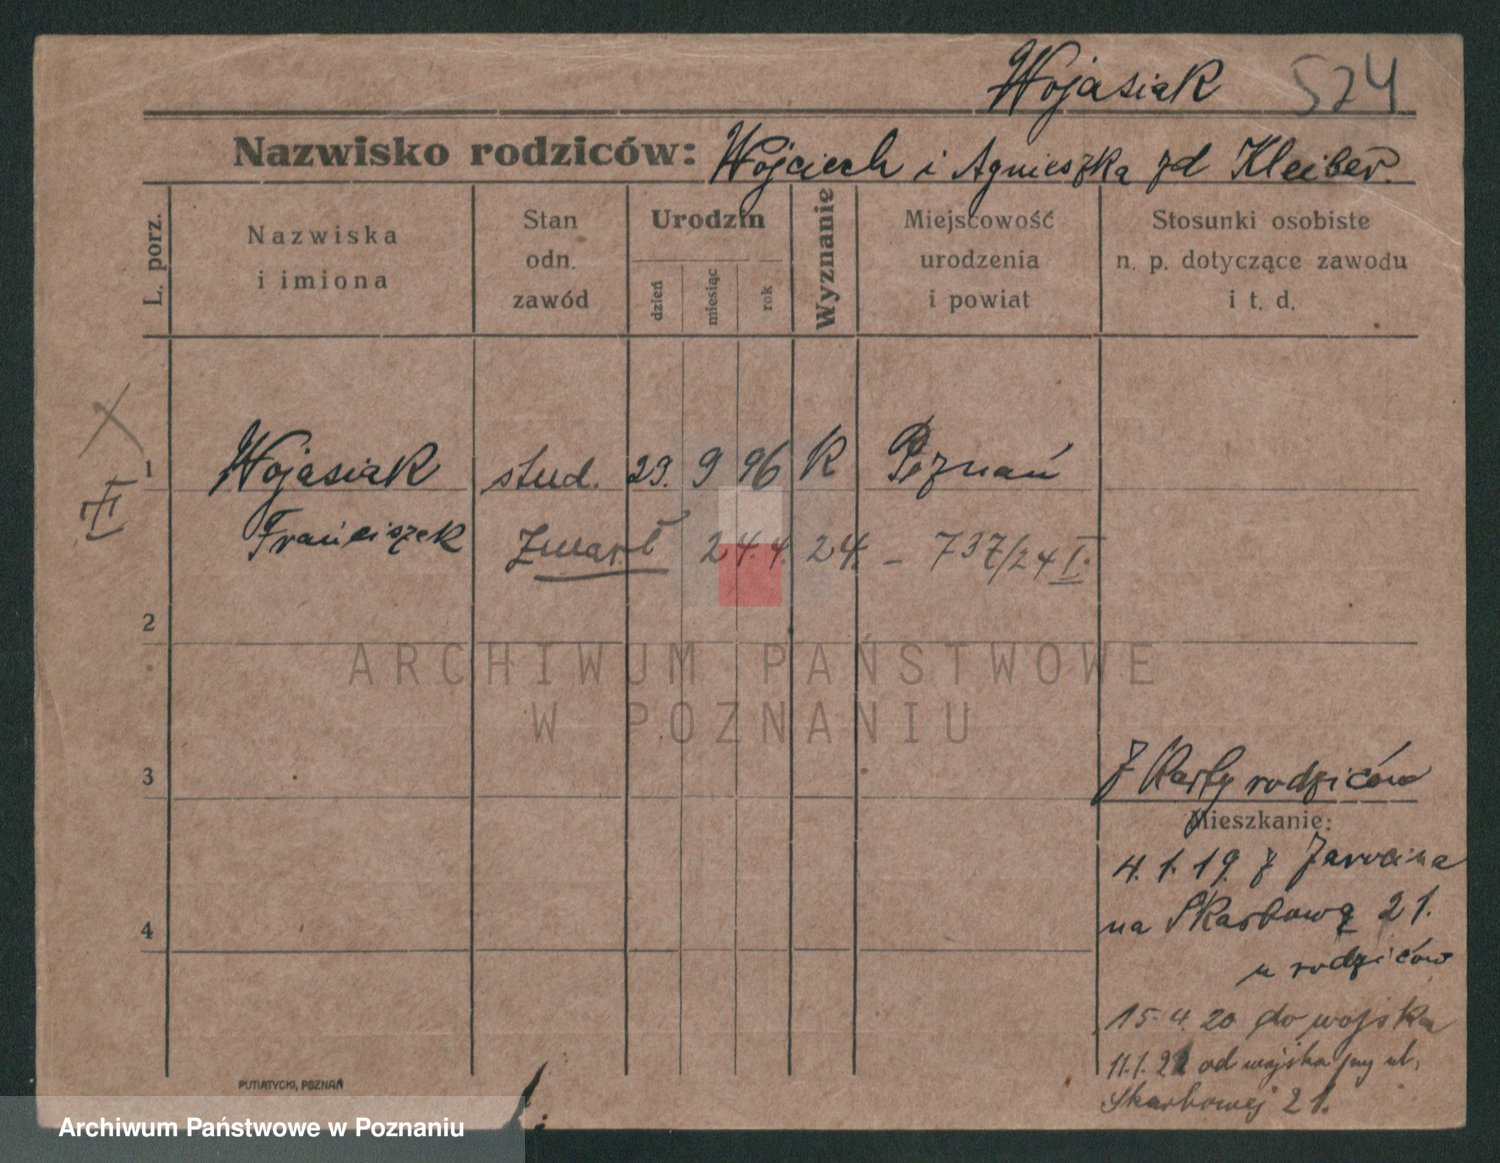 Wojasiak 524
Nazwisko rodziców: Wojciech i Agnieszka zd Kleiber.
L. porz.
Nazwiska
i imiona
Stan
odn.
zawód
Urodzin
dzień
miesiąc
rok
Wyznanie
Miejscowość
urodzenia
i powiat
Stosunki osobiste
n. p. dotyczące zawodu
i t. d.
1 Wojasiak stud. 29. 9 96 K Poznań
II Franciszek Zmarł 24.4.24. - 737/24 I.
2
3
Z Karty rodziców
Mieszkanie:
4.1.19. z Jarocina
4 na Skarbową 21.
u rodziców
15.4.20 do wojska
11.1.22 od wojska przy ul.
Skarbowej 21.
PUTIATYCKI, POZNAŃ
ARCHIWUM PAŃSTWOWE
W POZNANIU
Archiwum Państwowe w Poznaniu